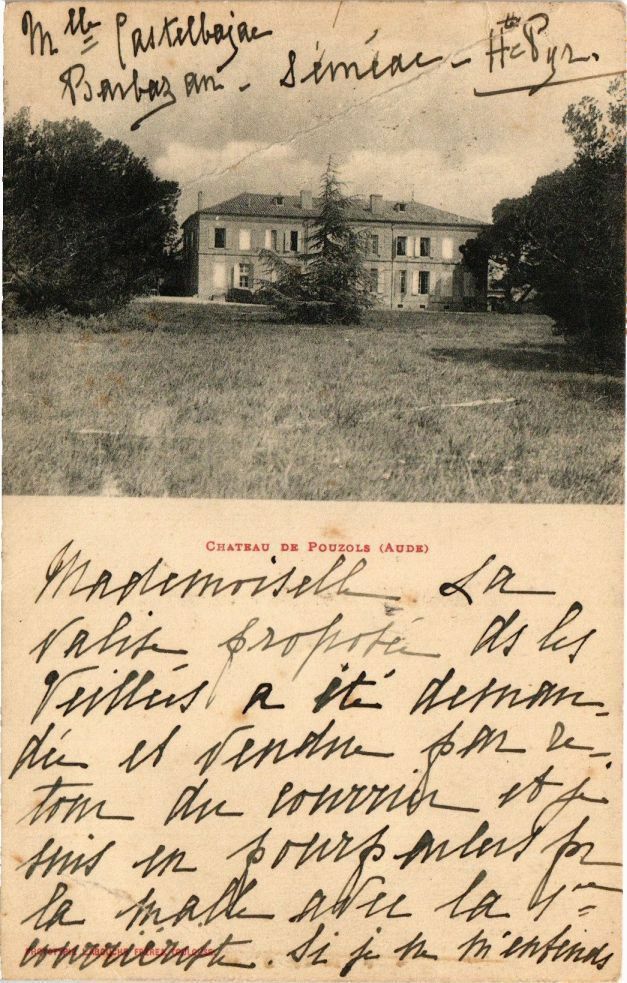 Mlle Castelbajac
Barbazan - Séméac - Htes Pyr.
CHATEAU DE POUZOLS (AUDE)
Mademoiselle La
valise proposée ds les
Veillées a été deman-
dée et vendue par re-
tour du courrier et je
suis en pourparlers pr
la malle avec la 1ère
inscrite. Si je ne m'entends
PHOTOTYPIE LABOUCHE FRÈRES TOULOUSE